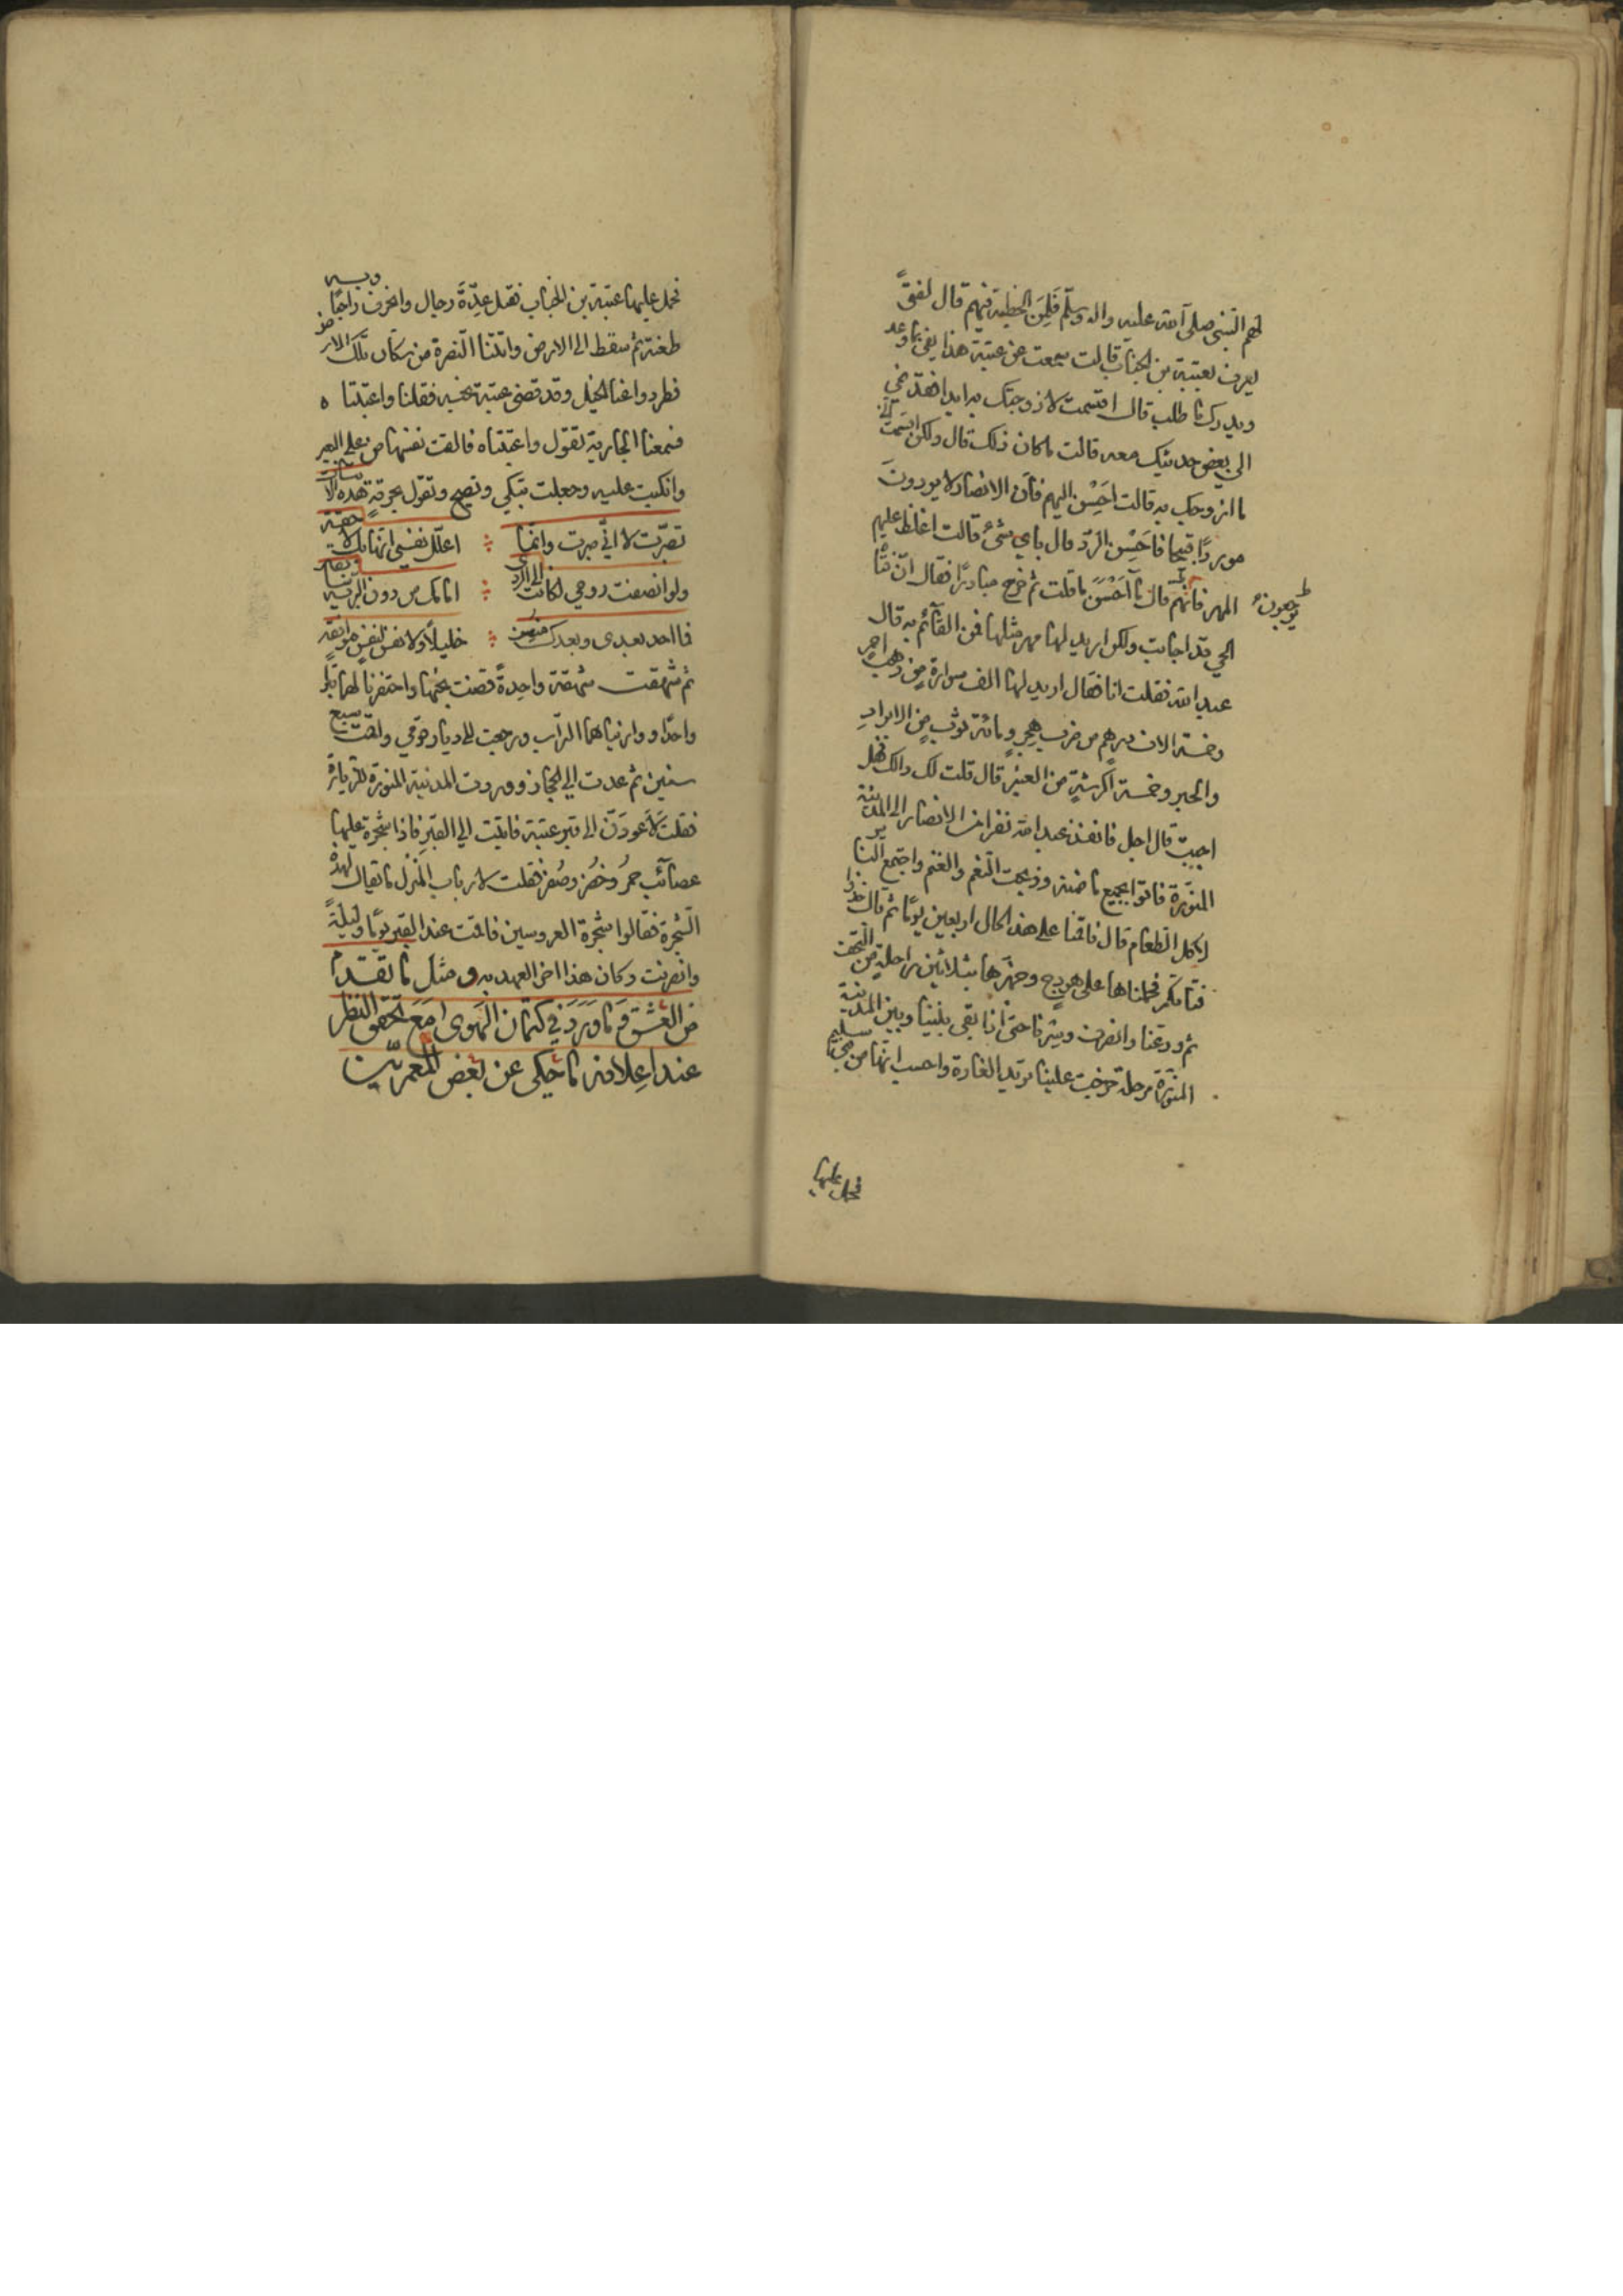 لهم النبي صلى الله عليه واله وسلّم فَلِمَن الخطبة فيهم قال لفتىً
يعرف بعتبة بن الحباب قالت سمعت عن عتبة هذا يفي بما وعد
ويدرك ما طلب قال اقسمت لا زوجتك به ابدا فقد نمي
الي بعض حديثك معه قالت ما كان ذلك قال ولكن اقسمت اني
ما ازوجك به قالت احَسِن اليهم فان الانصار لا يردون
مورداً قبيحا فاَحَسِن الرّد قال باي شئ قالت اغلظ عليهم
المهر فانهم يرجعون قال ما اَحَسْنَ ما قلت ثم خرج مبادرًا فقال ان فتاة
الحي قد اجابت ولكن اريد لها مهر مثلها فمن القائم به قال
عبد الله فقلت انا فقال اريد لها الف سوارة من ذهب احمر
وخمسة الاف درهم من ضرب هجر ومائة ثوب من الابراد
والحبر وخمسة اكرشة من العنبر قال قلت لك ذالك فهل
اجبت قال اجل فانفذ عبد الله نفرا من الانصار الى المدينة
المنورة فاتوا بجميع ما ضمنه وذبحت النعم والغنم واجتمع الناس
لاكل الطعام قال فاقمنا على هذه الحال اربعين يومًا ثم قال خذوا
فتاتكم فحملناها على هودج وجهزها بثلاثين راحلة من التحف
ثم ودعنا وانصرف وسرنا حتى اذا بقي بيننا وبين المدينة
المنورة مرحلة خرجت علينا خيل تريد الغارة واحسب انها من سليم
فحمل عليها
فحمل عليها عتبة بن الحباب فقتل عِدّةَ رجال وانحرف راجعًا وبه
طعنة ثم سقط الى الارض واتتنا النصرة من سكان تلك الارض
فطردوا عنا الخيل وقد قضى عتبة نحبه فقلنا واعتبتاه
فسمعنا الجارية تقول واعتبتاه فالقت نفسها من على البعير
وانكبت عليه وجعلت تبكي وتصيح وتقول بحرقة هذه الابيات
تصبّرت لا اني صبرت وانما ∴ اعلّل نفسي انها بك لاحقة
ولو انصفت روحي لكانت الى الردى ∴ امامك من دون البرية سابقة
فما احد بعدي وبعدك منصف ∴ خليلًا ولا نفس لنفس موافقة
ثم شهقت شهقة واحدةً قضت نحبها واحتفرنا لهما قبرًا
واحدًا وواريناهما التراب ورجعت الى ديار قومي واقمت سبع
سنين ثم عدت الى الحجاز ووردت المدينة المنورة للزيارة
فقلت لاَعودَنّ الى قبر عتبة فاتيت الى القبر فاذا شجرة عليها
عصائب حمرُ وخضر وصُفر فقلت لارباب المنزل ما يقال لهذه
الشجرة فقالوا شجرة العروسين فاقمت عند القبر يومًا وليلةً
وانصرفت وكان هذا اخر العهد به ومثل ما تقدم
من العشق وَمَا وَرَدَ في كتمان الهوى مَعَ تحقق النظر
عند اعلانه ما حكي عن بعض المعمرين